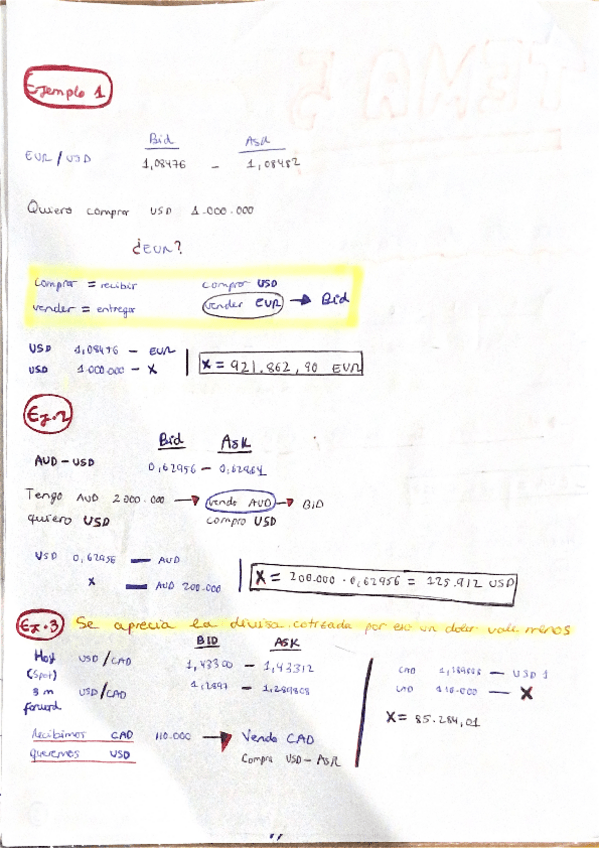 Ejemplo 1
Bid Ask
EUR / USD 1,08476 - 1,08482
Quiero comprar USD 1.000.000
¿EUR?
comprar = recibir comprar USD
vender = entregar vender EUR → Bid
USD 1,08476 - EUR
USD 1.000.000 - X X = 921.862,90 EUR
Ej.2
Bid Ask
AUD - USD 0,62956 - 0,62964
Tengo AUD 2000.000 → vendo AUD → BID
quiero USD compro USD
USD 0,62956 — AUD
X — AUD 200.000 X = 200.000 · 0,62956 = 125.912 USD
Ej.3 Se aprecia la divisa cotizada por eso un dolar vale menos
BID ASK
Hoy USD/CAD 1,43300 - 1,43312
(Spot)
3 m USD/CAD 1,2897 - 1,289808
forward
CAD 1,289808 - USD 1
CAD 110.000 — X
X = 85.284,01
Recibimos CAD 110.000 → Vendo CAD
Queremos USD Compra USD - ASK